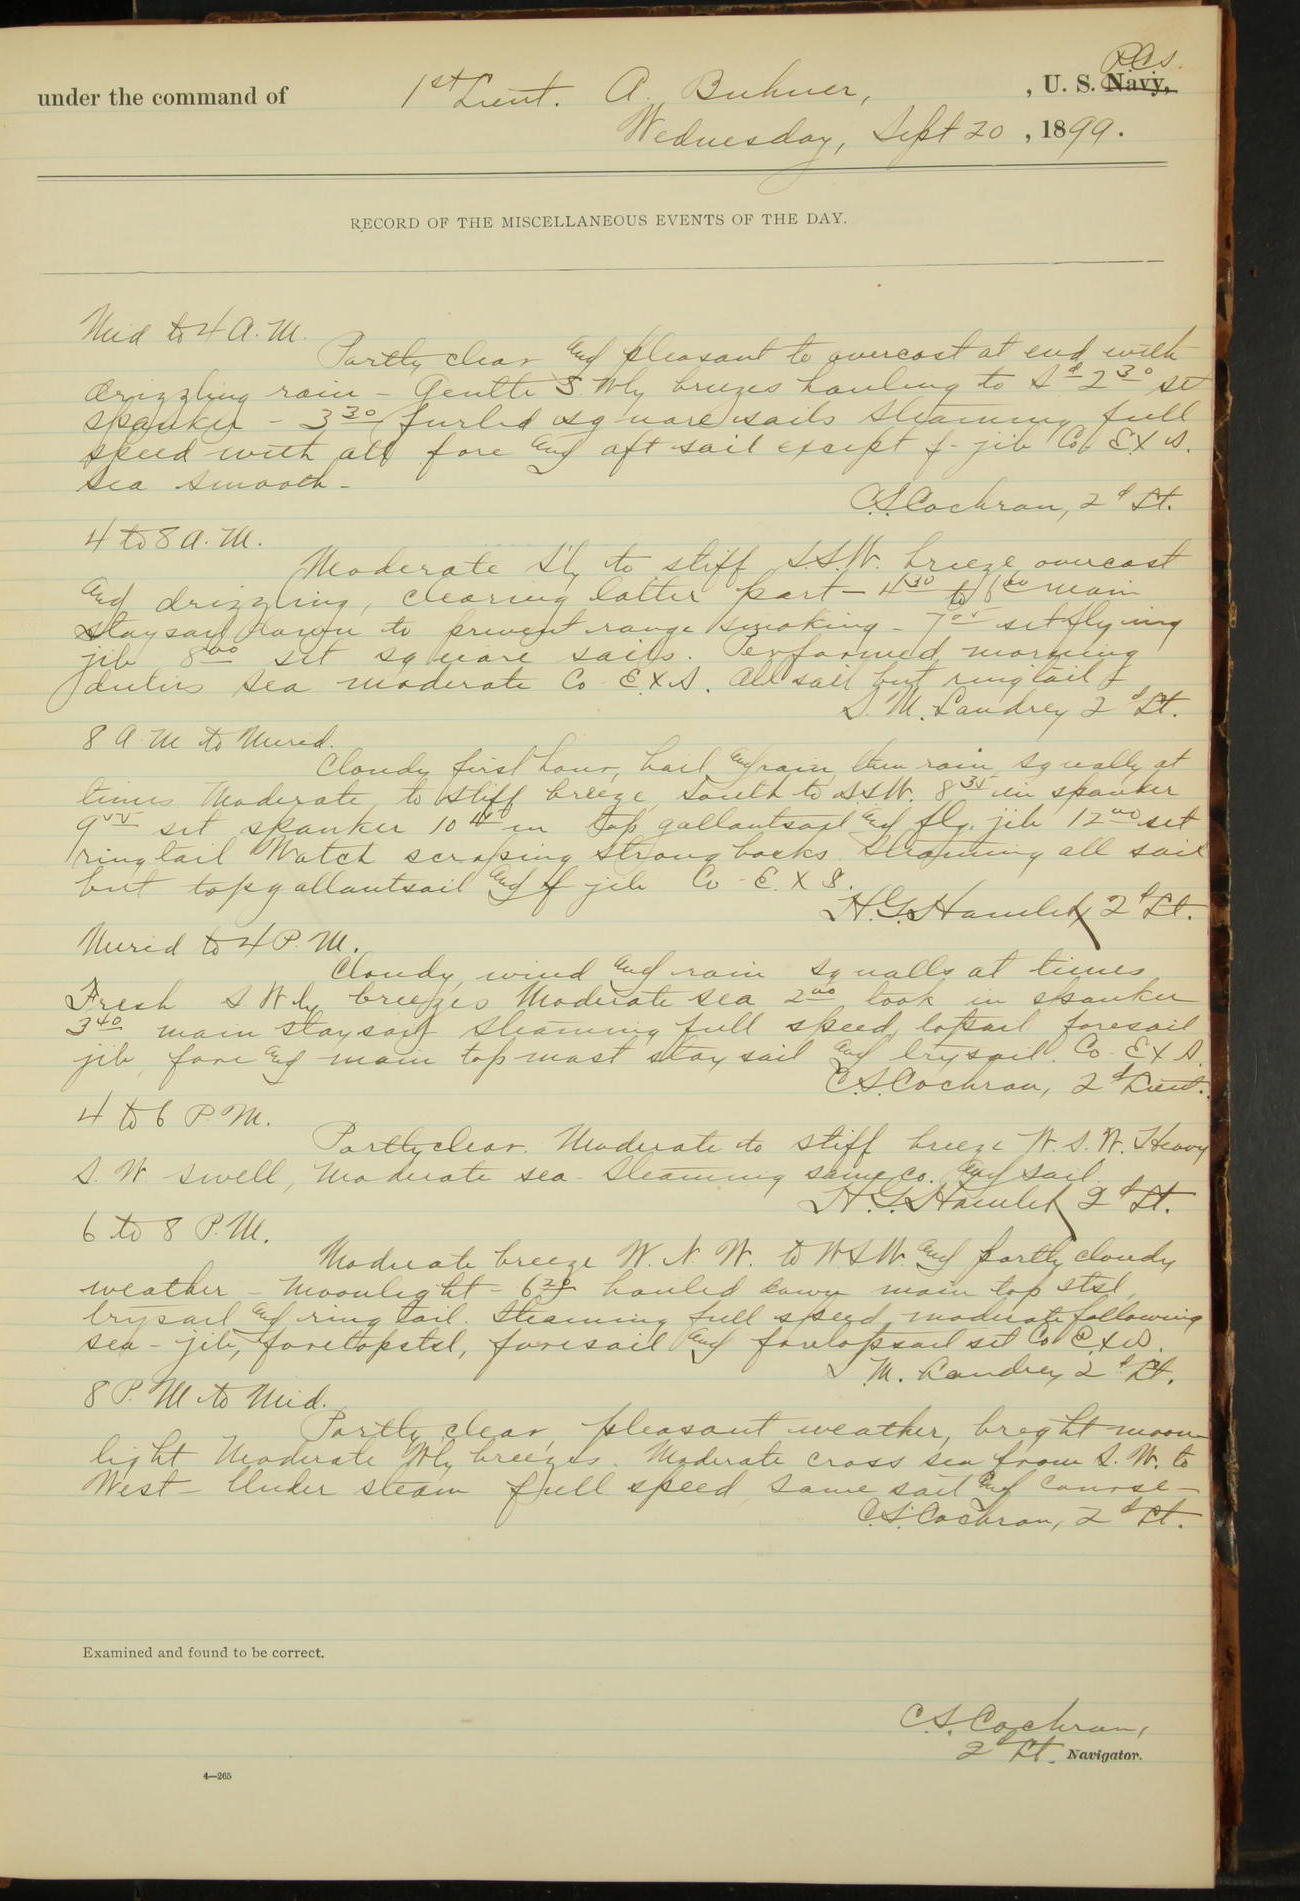 under the command of 1st Lieut. A. Buhner, , U. S. Navy, R.C.S.
Wednesday, Sept 20 , 1899.
RECORD OF THE MISCELLANEOUS EVENTS OF THE DAY.
Mid to 4 A.M.
Partly clear and pleasant to overcast at end with
drizzling rain - Gentle S Wly breezes hauling to Sd 2 30 set
spanker - 3 30 furled square sails steaming full
speed with all fore and aft sail except f- jib Co ExS.
sea smooth -
C.S. Cochran, 2d Lt.
4 to 8 A.M.
Moderate S'ly to stiff S.S.W. breeze overcast
and drizzling, clearing latter part - 4 30 to 6 00 main
staysail down to prevent range smoking - 7 05 set flying
jib 8 00 set square sails. Performed morning
duties sea moderate Co E x S. All sail but ringtail
S. M. Landrey 2d Lt.
8 A M to Merid.
Cloudy first hour, hail and rain then rain squally at
times Moderate to stiff breeze South to S.S.W. 8 35 in spanker
9 55 set spanker 10 in top gallantsail and flg. jib 12 00 set
ringtail Watch scraping strongbacks Steaming all sail
but topgallantsail and f jib Co - E. X S.
H.G. Hamlet 2d Lt.
Merid to 4 P. M.
Cloudy, wind and rain squalls at times
Fresh S W ly breezes Moderate sea 2 00 took in spanker
3 40 main staysail Steaming full speed, topsail foresail
jib, fore and main topmast staysail and trysail. Co. E x S.
C.S. Cochran, 2d Lieut.
4 to 6 P. M.
Partly clear. Moderate to stiff breeze W. S. W. Heavy
S. W swell, Moderate sea - Steaming same co. and sail
H.G. Hamlet 2d Lt.
6 to 8 P.M.
Moderate breeze W. N. W. to W S W and partly cloudy
weather - Moonlight - 6 20 hauled down main top stsl,
trysail and ring tail. Steaming full speed, moderate following
sea - jib, foretopstsl, foresail and foretopsail set Co E x S.
M. Landrey 2d Lt.
8 P. M to Mid.
Partly clear, pleasant weather, bright moon
light Moderate Wly breezes. Moderate cross sea from S. W. to
West - Under steam full speed same sail and course -
C.S. Cochran, 2d Lt.
Examined and found to be correct.
C.S. Cochran,
2d Lt. Navigator.
4—265